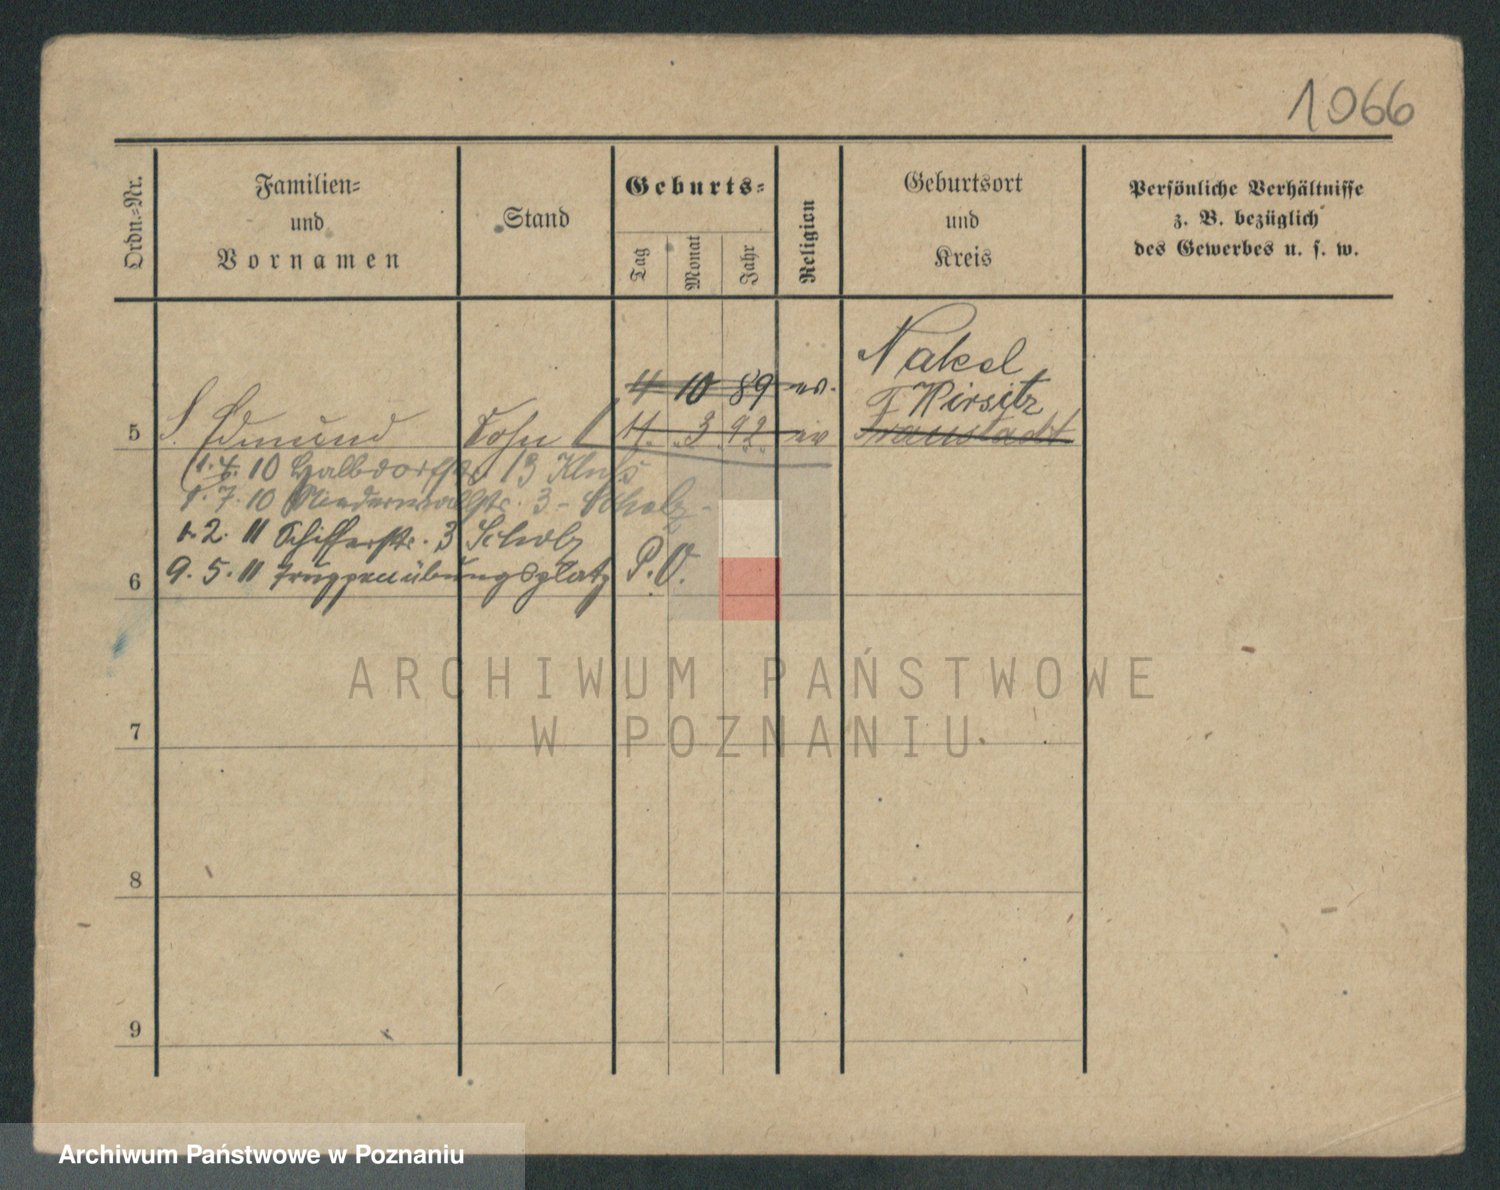 1066
Ordn.-Nr.
Familien-
und
Vornamen
Stand
Geburts-
Tag
Monat
Jahr
Religion
Geburtsort
und
Kreis
Persönliche Verhältnisse
z. B. bezüglich
des Gewerbes u. s. w.
Nakel
11 10 89 ev.
Wirsitz
5 S. Edmund Sohn 11. 3. 92. ev Fraustadt
10 Halbdorfstr. 13
1. 7. 10 Niederwallstr. 3 - Scholz -
1. 2. 11 Schifferstr. 3 Scholz
6 9. 5. 11 Truppenübungsplatz P. O.
7
8
9
ARCHIWUM PAŃSTWOWE
W POZNANIU
Archiwum Państwowe w Poznaniu